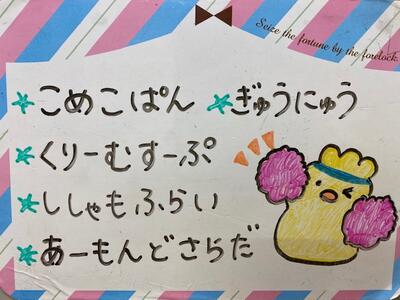 Seize the fortune by the forelock.
★こめこぱん ★ぎゅうにゅう
★くりーむすーぷ
★ししゃもふらい
★あーもんどさらだ